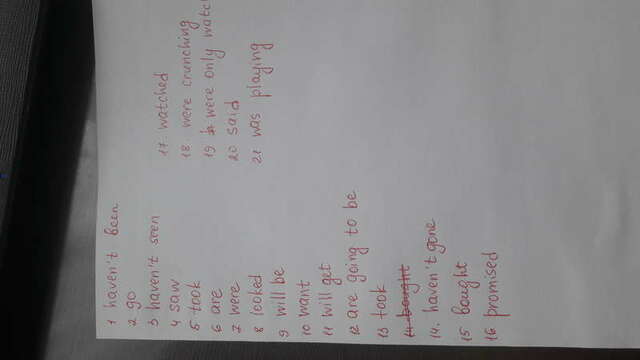 1 haven't been
2 go
3 haven't seen
4 saw
5 took
6 are
7 were
8 looked
9 will be
10 want
11 will get
12 are going to be
13 took
14 bought
14. haven't gone
15 bought
16 promised
17. watched
18. were crunching
19 were only watc
20 said
21 was playing